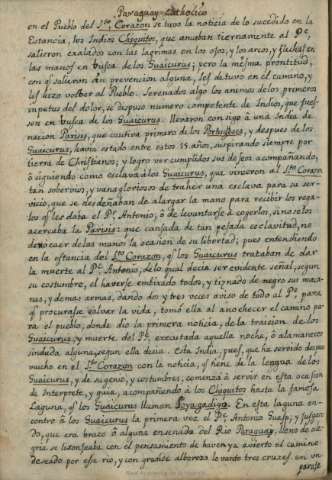 Paraguay Catholico
en el Pueblo del Sto. Corazon se tuvo la noticia de lo sucedido en la
Estancia, los Indios Chiquitos, que amaban tiernamente al Pe.
salieron exalados con las lagrimas en los ojos, y los arcos, y flechas en
las manos en busca de los Guaicurus; pero la misma promptitud,
con que salieron sin prevencion alguna, les detuvo en el camino, y
les hizo volver al Pueblo. Serenados algo los animos de los primeros
impetus del dolor, se dispuso numero competente de Indios, que fues-
sen en busca de los Guaicurus. Llevaron consigo à una India de
nacion Parisis, que cautiva primero de los Portugueses, y despues de los
Guaicurus, havia estado entre estos 15 años, suspirando siempre por
tierra de Christianos; y logro ver cumplidos sus deseos acompañando,
ò siguiendo como esclava à los Guaicurus, que vinieron al Sto. Corazon
tan sobervios, y vanagloriosos de traher una esclava para su ser-
vicio, que se desdeñaban de alargar la mano para recibir los rega-
los que les daba el Pe. Antonio, ò de levantarse à cogerlos, si no se los
acercaba la Parisis: que cansada de tan pesada esclavitud, no
dexò caer de las manos la ocasion de su libertad; pues entendiendo
en la estancia del Sto. Corazon, que los Guaicurus trataban de dar
la muerte al Pe. Antonio, de lo qual decia ser evidente señal, segun
su costumbre, el haverse embijado todos, y tiznado de negro sus ma-
nos, y demas armas, dando dos y tres veces aviso de todo al Pe. para
que procurasse salvar la vida, tomò ella al anochecer el camino pa-
ra el pueblo, donde dio la primera noticia, de la traicion de los
Guaicurus, y muerte del Pe. executada aquella noche, ò al amanecer
sin duda alguna, segun ella decia. Esta India, pues, que ha servido despues
mucho en el Sto. Corazon con la noticia, que tiene de la lengua de los
Guaicurus, y de su genio, y costumbres, comenzò à servir en esta ocasion
de Interprete, y guia, acompañando à los Chiquitos hasta la famosa
Laguna, que los Guaicurus llaman En esta laguna en-
contrò à los Guaicurus la primera vez el Pe. Antonio Guasp; y juzgan-
do, que era brazo ò alguna ensenada del Rio Paraguay, lleno de ale-
gria se lisonjeaba con el pensamiento de haver ya abierto el camino
deseado por esse rio, y con grande alborozo levantò tres cruzes en un
paraje